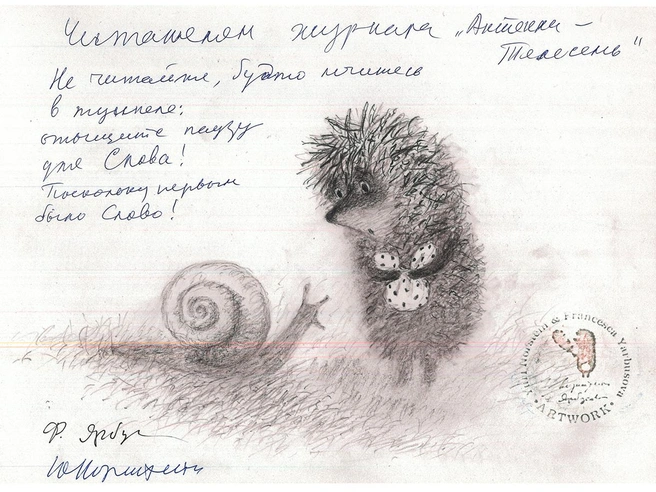 Читателям журнала „Антенна –
Телесемь"
Не читайте, будто мчитесь
в туннеле:
отыщите паузу
для Слова!
Поскольку первым
было Слово!
Ф. Ярбус
ЮНорштейн
Yuri Norstein & Francesca Yarbusova
• ARTWORK •